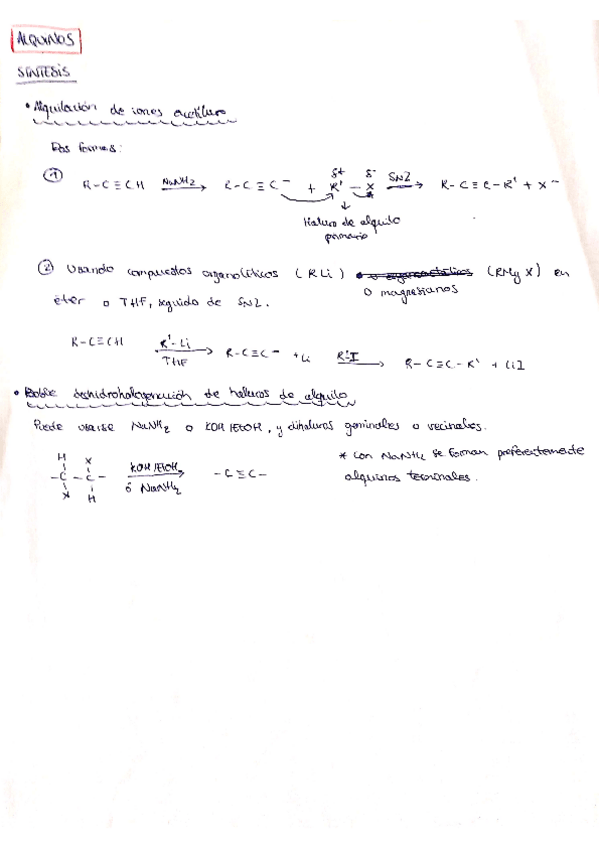 ALQUINOS
SÍNTESIS
• Alquilación de iones acetiluro
Dos formas:
① R-C≡CH NaNH₂ → R-C≡C⁻ + R'δ+ - Xδ- SN2 → R-C≡C-R' + X⁻
↓
Haluro de alquilo
primario
② Usando compuestos organolíticos (RLi) o organometálicos (RMgX) en
o magnesianos
éter o THF, seguido de SN2.
R-C≡CH R'-Li / THF → R-C≡C⁻ +Li R'I → R-C≡C-R' + LiI
• Doble deshidrohalogenación de haluros de alquilo
Puede usarse NaNH₂ o KOH/EtOH, y dihaluros geminales o vecinales.
H X
-C-C- KOH/EtOH, ó NaNH₂ → -C≡C-
X H
* con NaNH₂ se forman preferentemente
alquinos terminales.